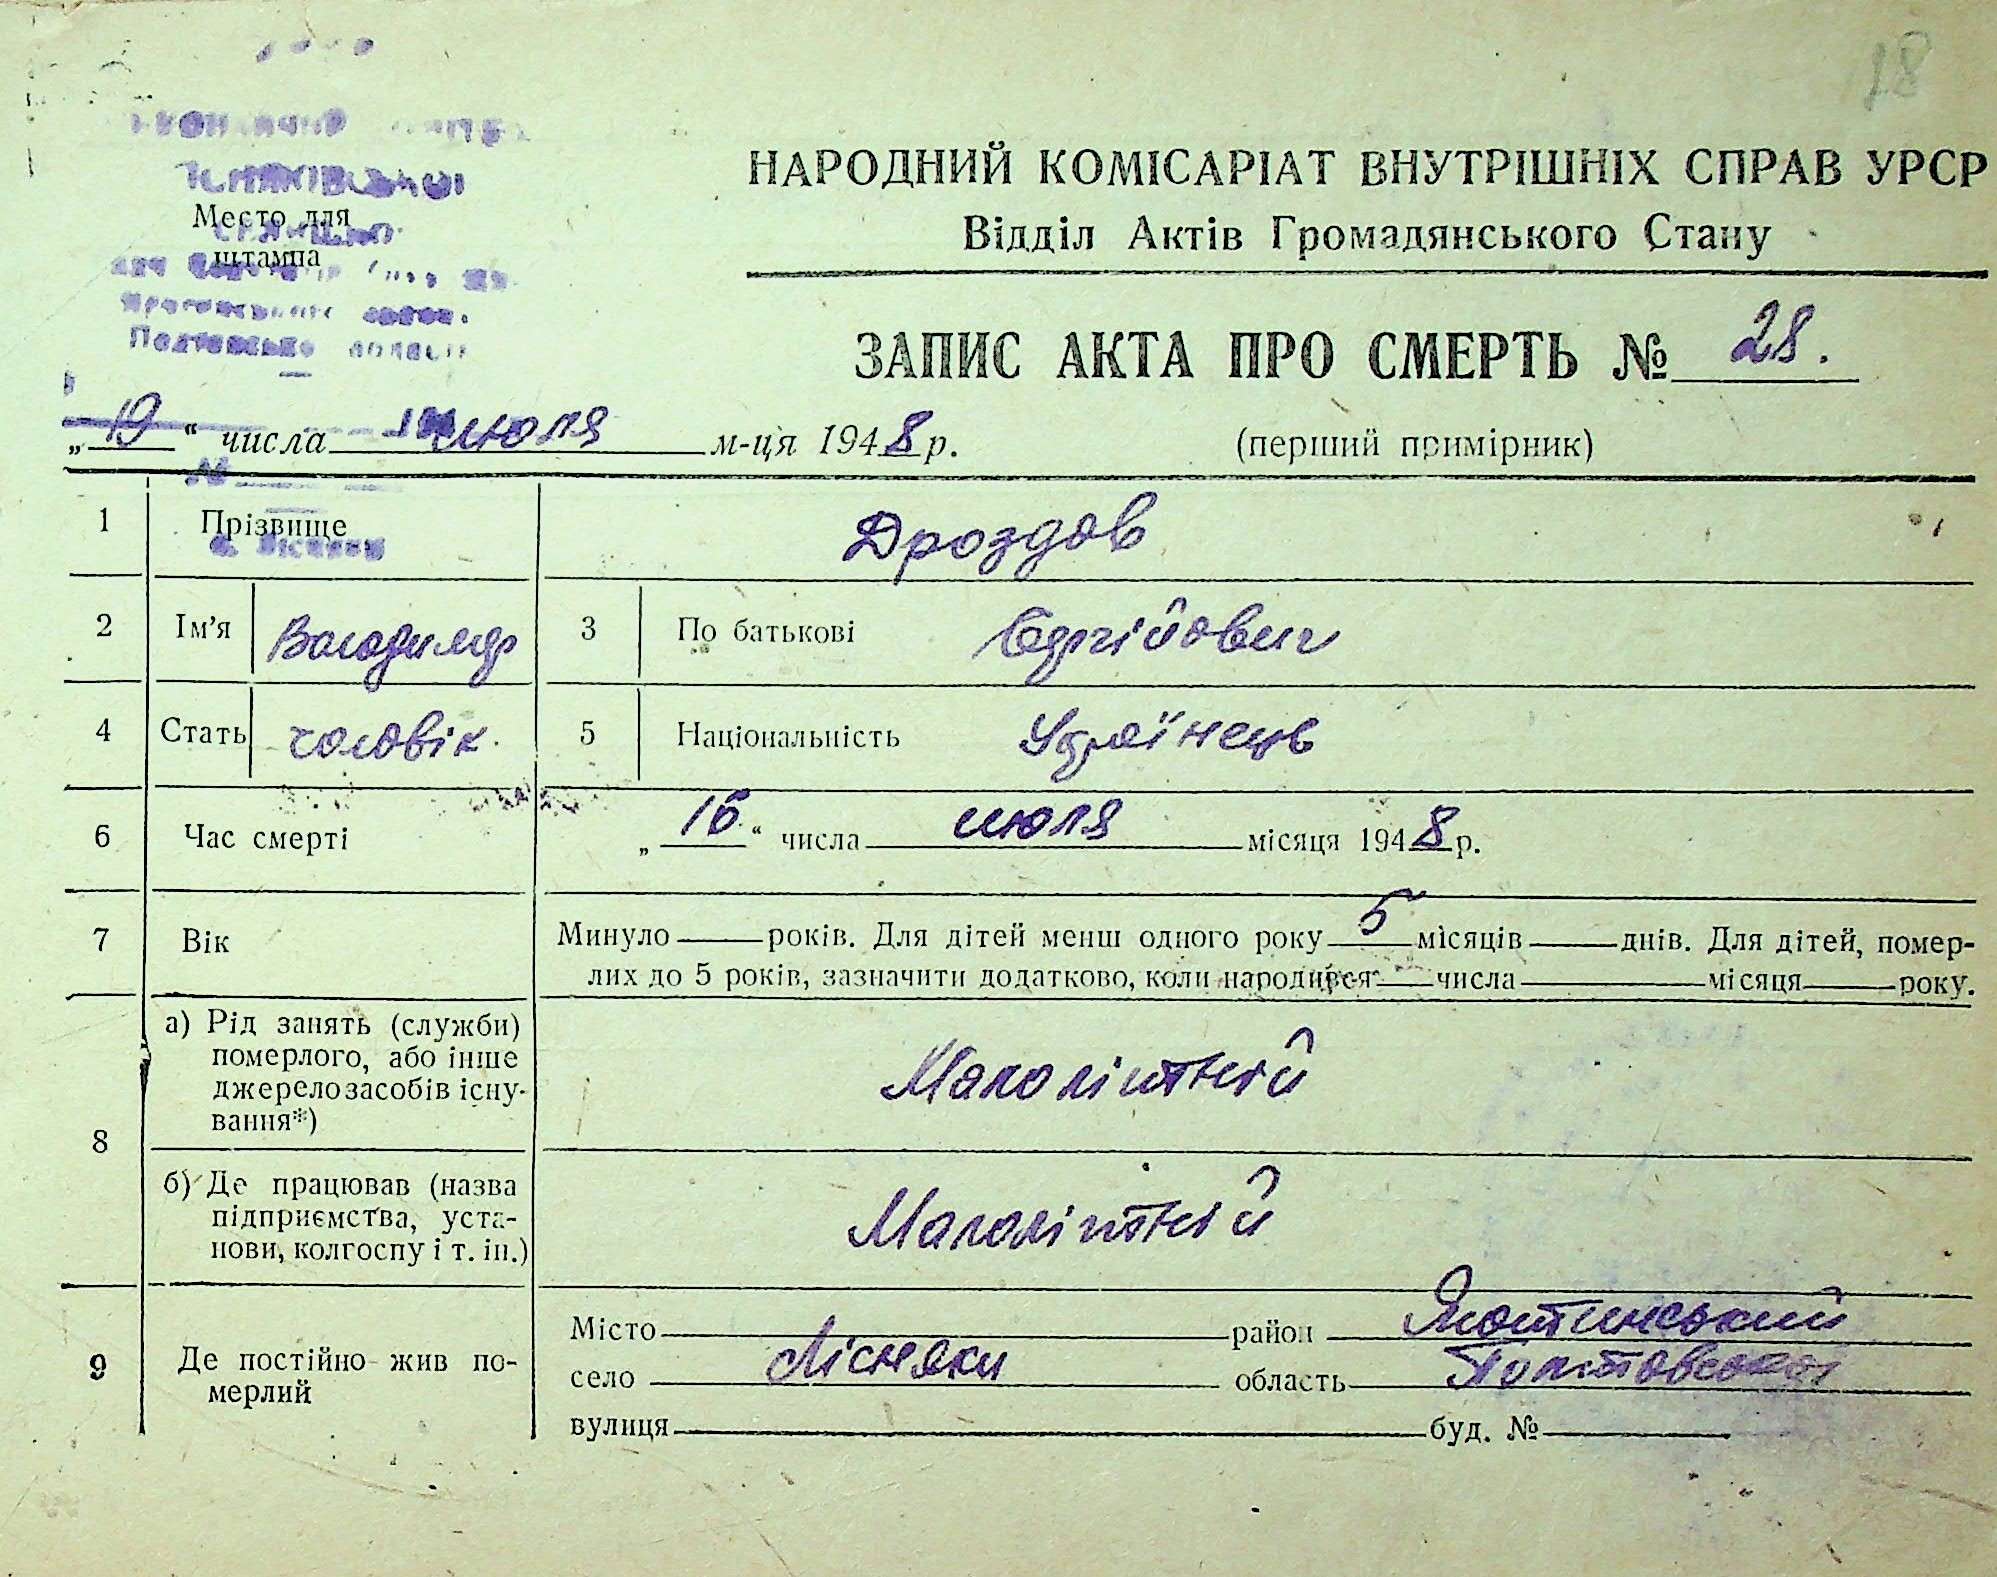 28
Место для
штампа
НАРОДНИЙ КОМІСАРІАТ ВНУТРІШНІХ СПРАВ УРСР
Відділ Актів Громадянського Стану
ЗАПИС АКТА ПРО СМЕРТЬ № 28.
„19“ числа июля м-ця 1948 р.
(перший примірник)
1 Прізвище Дроздов
2 Ім’я Володимер 3 По батькові Сергійович
4 Стать чоловік. 5 Національність Українець
6 Час смерті „16“ числа июля місяця 1948 р.
7 Вік Минуло років. Для дітей менш одного року 5 місяців днів. Для дітей, помер-
лих до 5 років, зазначити додатково, коли народився числа місяця року.
8 а) Рід занять (служби)
померлого, або інше
джерело засобів існу-
вання*)
Малолітній
б) Де працював (назва
підприємства, уста-
нови, колгоспу і т. ін.)
Малолітній
9 Де постійно жив по-
мерлий
Місто район Яготинський
село Лісняки область Полтавської
вулиця буд. №